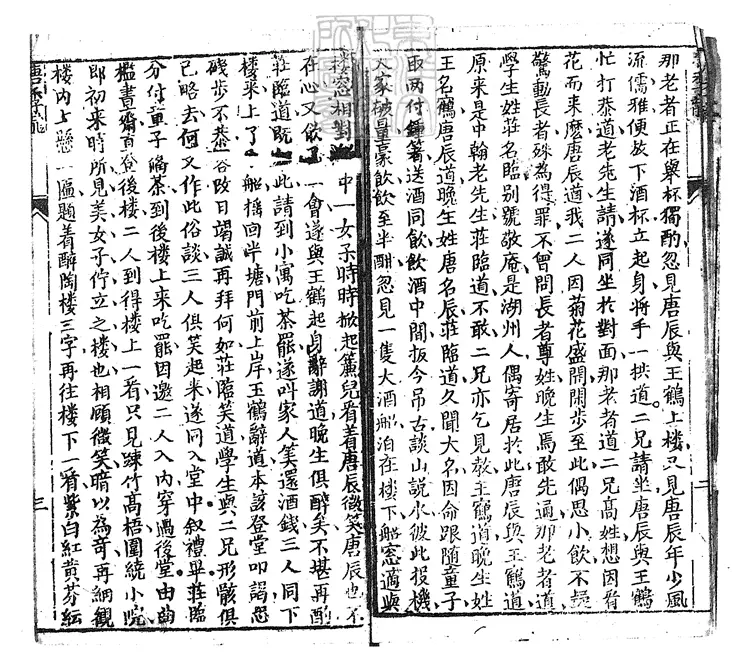 那老者正在舉杯獨酌忽見唐辰與王鶴上樓又見唐辰年少風
流儒雅便放下酒杯立起身將手一拱道二兄請坐唐辰與王鶴
忙打恭道老先生請遂同坐於對面那老者道二兄高姓想因看
花而來麽唐辰道我二人因菊花盛開閒步至此偶思小飲不疑
驚動長者殊為得罪不曾問長者尊姓晚生焉敢先通那老者道
學生姓莊名臨別號敬庵是湖州人偶寄居於此唐辰與王鶴道
原来是中翰老先生莊臨道不敢二兄亦乞見教王鶴道晚生姓
王名鶴唐辰道晚生姓唐名辰莊臨道久聞大名因命跟隨童子
取两付鍾箸送酒同飲飲酒中間扳今吊古談山說水彼此投機
大家極量豪飲飲至半酣忽見一隻大酒船泊在樓下船窓適與
樓窓相對 中一女子時時掀起簾兒看着唐辰微笑唐辰也不
在心又飲了一會遂與王鶴起身辭謝道晚生俱醉矣不堪再酌
莊臨道既 此請到小寓吃茶罷遂叫家人筭還酒錢三人同下
樓來上了 船揺回半塘門前上岸王鶴辭道本該登堂叩謁恐
磯步不恭容改日竭誠再拜何如莊臨笑道學生與二兄形骸俱
已略去何又作此俗談三人俱笑起來遂同入堂中叙禮畢莊臨
分付童子瀹茶到後樓上來吃罷因邀二人入内穿過後堂由曲
檻書齋百登後樓二人到得樓上一看只見踈竹高梧圍繞小院
即初来時所見美女子佇立之樓也相顧微笑暗以為奇再細觀
樓内上懸一匾題着醉陶樓三字再往樓下一看紫白紅黄芬紜
三
二